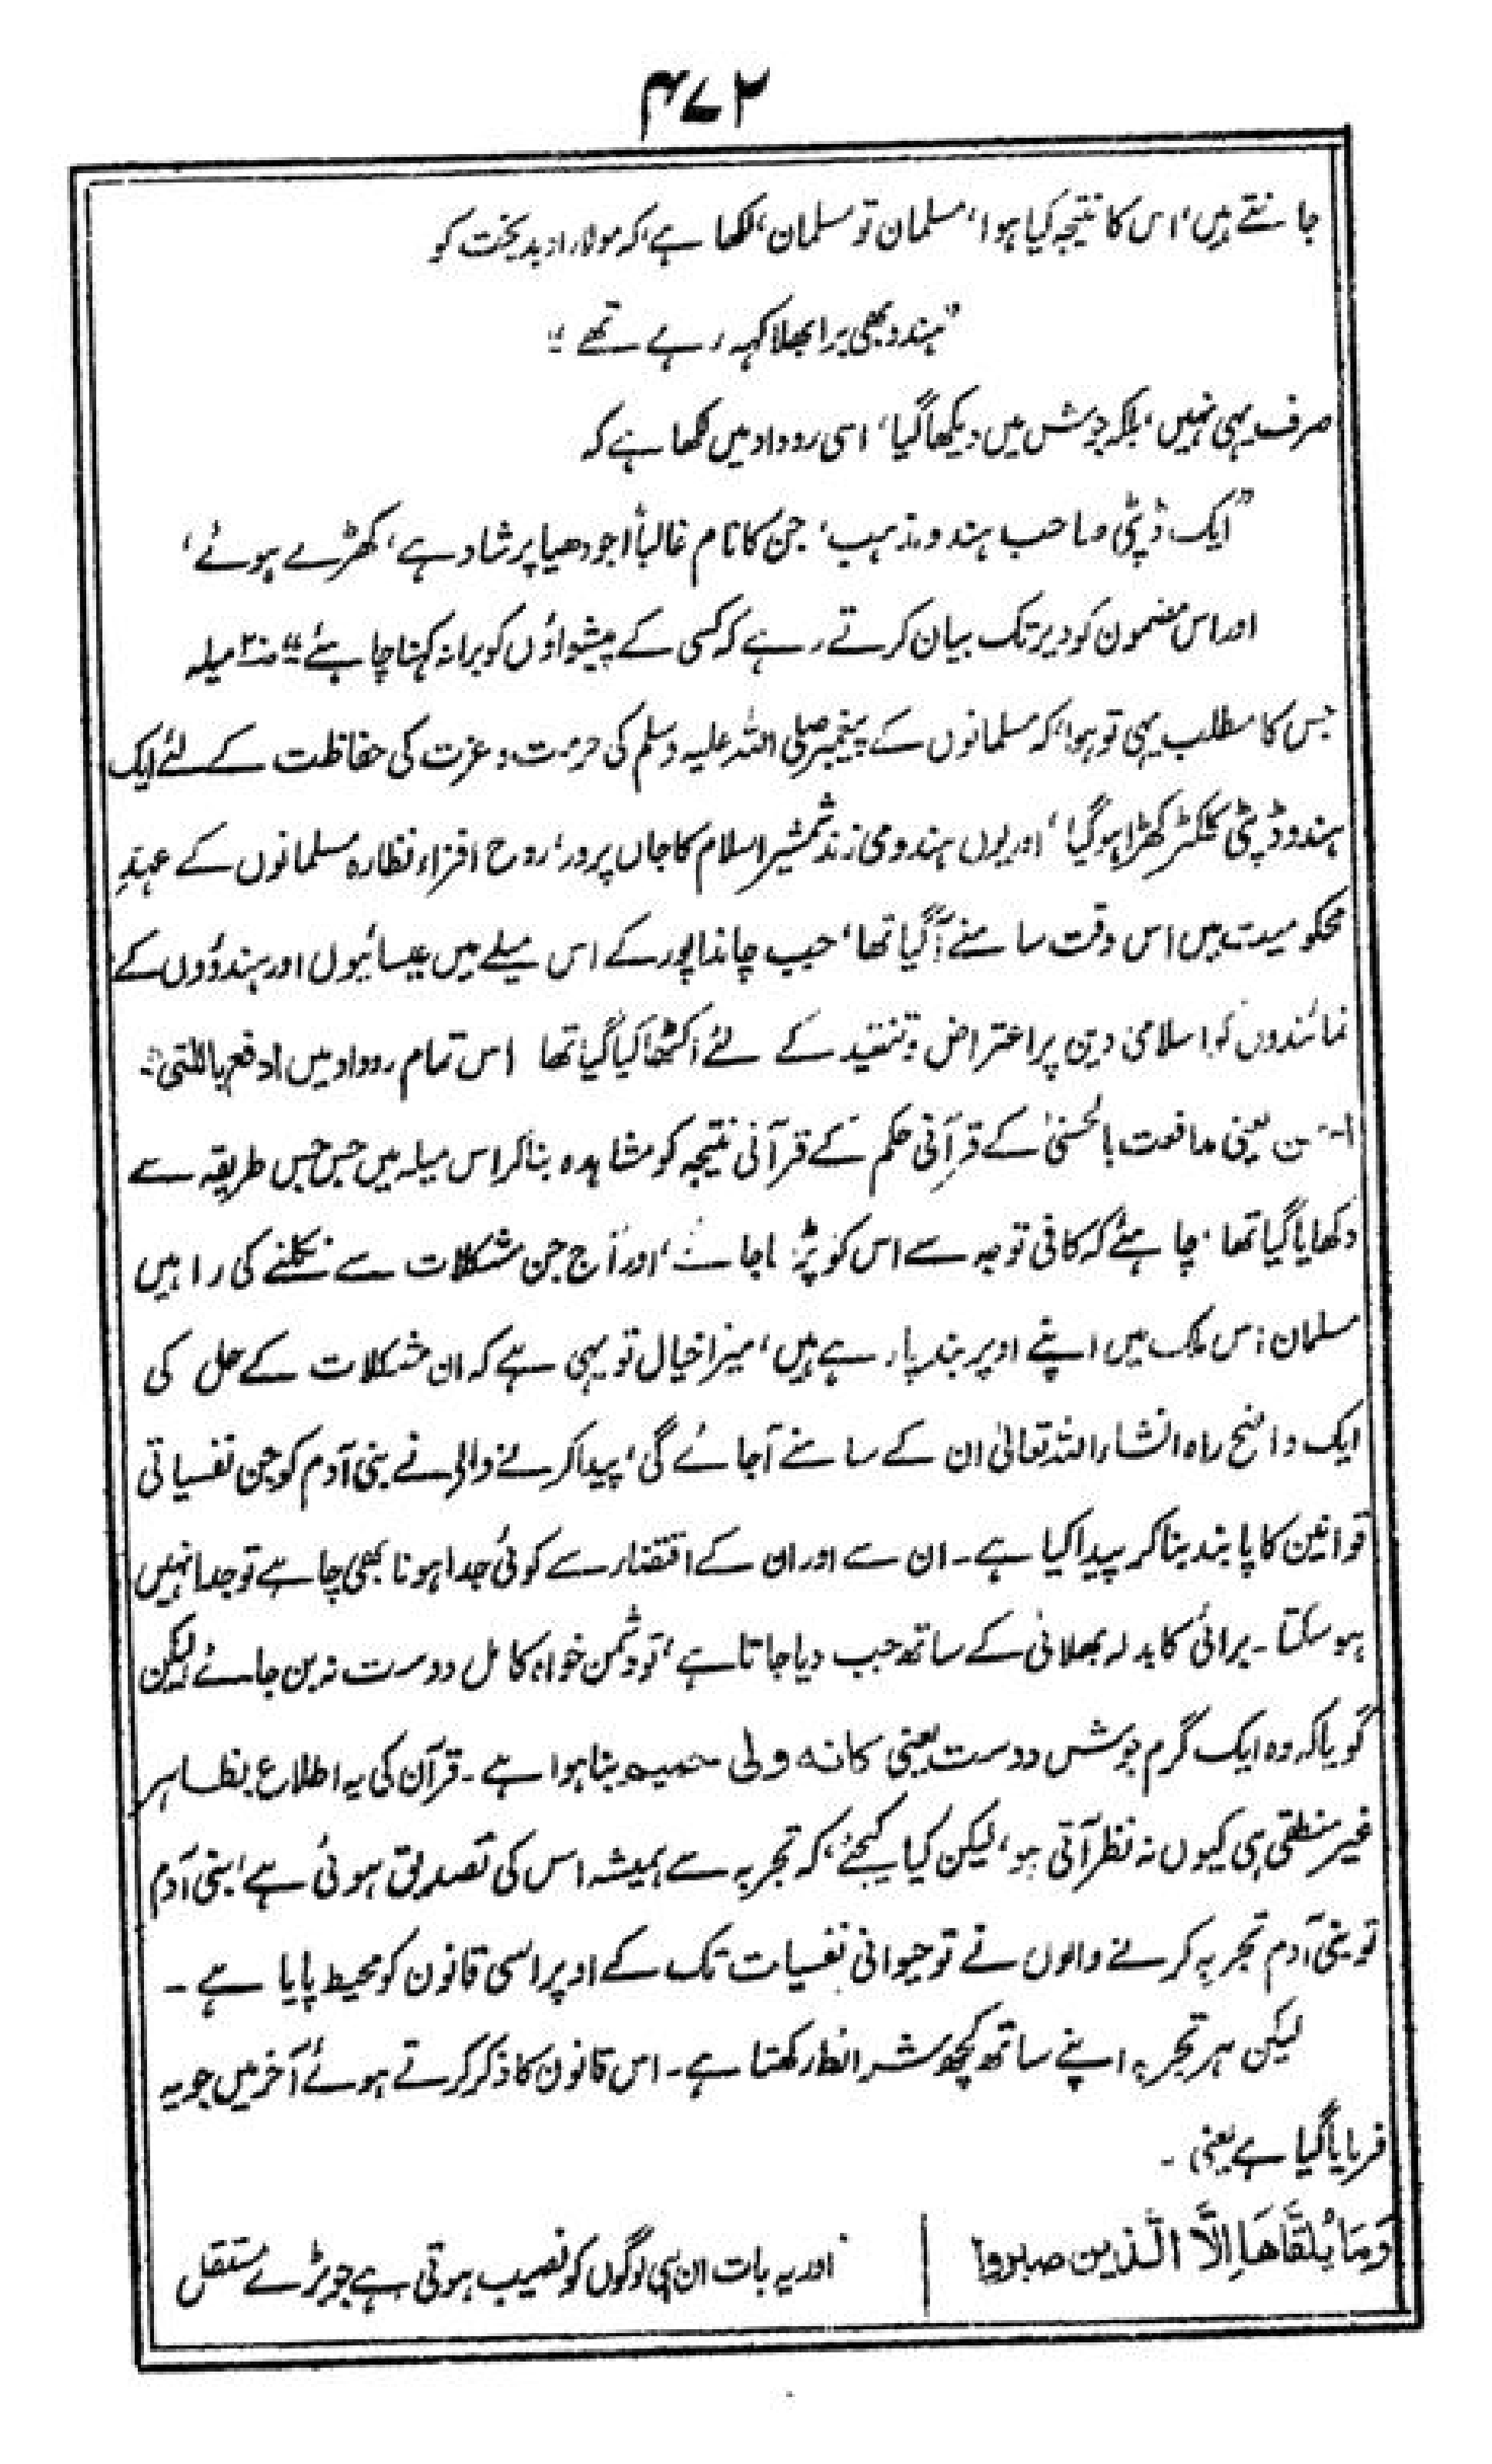 ۴۷۲
جانتے ہیں، اس کا نتیجہ کیا ہوا، مسلمان تو مسلمان، لکھا ہے، کہ مولاداد بدبخت کو
"ہندو بھی برا بھلا کہہ رہے تھے"
صرف یہی نہیں، بلکہ جوش میں دیکھا گیا، اسی روداد میں لکھا ہے کہ
"ایک ڈپٹی صاحب ہندو مذہب، جن کا نام غالباً اجودھیا پرشاد ہے، کھڑے ہوئے،
اور اس مضمون کو دیر تک بیان کرتے رہے کہ کسی کے پیشواؤں کو برا نہ کہنا چاہئے" میلہ
جس کا مطلب یہی تو ہوا، کہ مسلمانوں کے پیغمبر صلی اللہ علیہ وسلم کی حرمت و عزت کی حفاظت کے لئے ایک
ہندو ڈپٹی کلکٹر کھڑا ہوگیا، اور یوں ہندو می زند شمشیر اسلام کا جاں پرور، روح افزاء نظارہ مسلمانوں کے عہدِ
محکومیت میں اس وقت سامنے آگیا تھا، جب چاندا پور کے اس میلے میں عیسائیوں اور ہندؤوں کے
نمائندوں کو اسلامی دین پر اعتراض و تنقید کے لئے اکٹھا کیا گیا تھا اس تمام روداد میں ادفع بالتی
یعنی مدافعت بالحسنیٰ کے قرآنی حکم کے قرآنی نتیجہ کو مشاہدہ بنا کر اس میلہ میں جس جس طریقہ سے
دکھایا گیا تھا، چاہئے کہ کافی توجہ سے اس کو پڑھا جائے، اور آج جن مشکلات سے نکلنے کی راہیں
مسلمان اس ملک میں اپنے اوپر بند پا رہے ہیں، میرا خیال تو یہی ہے کہ ان مشکلات کے حل کی
ایک واضح راہ انشاء اللہ تعالیٰ ان کے سامنے آجائے گی، پیدا کرنے والے نے بنی آدم کو جن نفسیاتی
قوانین کا پابند بنا کر پیدا کیا ہے۔ ان سے اور ان کے اقتضاء سے کوئی جدا ہونا بھی چاہے تو جدا نہیں
ہو سکتا۔ برائی کا بدلہ بھلائی کے ساتھ جب دیا جاتا ہے، تو دشمن خواہ کامل دوست نہ بن جائے لیکن
گویا کہ وہ ایک گرم جوش دوست یعنی کانہ ولی حمیم بنا ہوا ہے۔ قرآن کی یہ اطلاع بظاہر
غیر منطقی ہی کیوں نہ نظر آتی ہو، لیکن کیا کیجئے، کہ تجربہ سے ہمیشہ اس کی تصدیق ہوئی ہے، بنی آدم
تو بنی آدم تجربہ کرنے والوں نے تو حیوانی نفسیات تک کے اوپر اسی قانون کو محیط پایا ہے۔
لیکن ہر تجربہ اپنے ساتھ کچھ شرائط رکھتا ہے۔ اس قانون کا ذکر کرتے ہوئے آخر میں جو یہ
فرمایا گیا ہے یعنی۔
وَمَا يُلَقَّاهَا اِلَّا الَّذِين صبروا | اور یہ بات ان ہی لوگوں کو نصیب ہوتی ہے جو بڑے مستقل